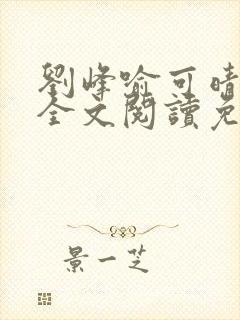 劉峰喻可晴
全文閱讀免
景一芝